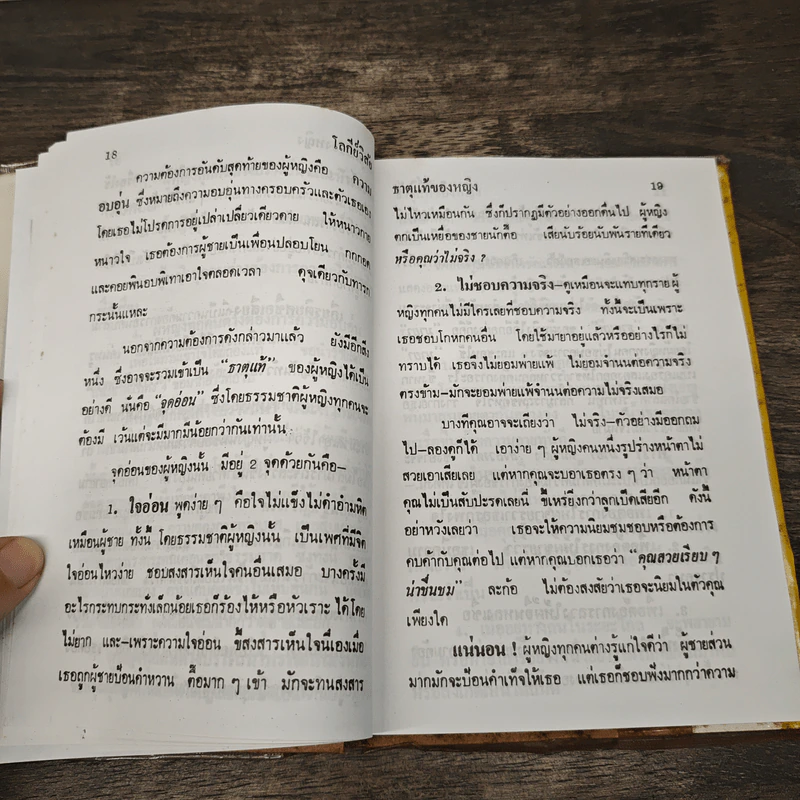 18
โลกีย์วิสัย
ความต้องการอันดับสุดท้ายของผู้หญิงคือ ความ
อบอุ่น ซึ่งหมายถึงความอบอุ่นทางครอบครัวและตัวเธอเอง
โดยเธอไม่โปรดการอยู่เปล่าเปลี่ยวเดียวดาย ให้หนาวกาย
หนาวใจ เธอต้องการผู้ชายเป็นเพื่อนปลอบโยน กกกอด
และคอยพินอบพิเทาเอาใจตลอดเวลา ดุจเดียวกับทารก
กระนั้นแหละ
นอกจากความต้องการดังกล่าวมาแล้ว ยังมีอีกสิ่ง
หนึ่ง ซึ่งอาจจะรวมเข้าเป็น "ธาตุแท้" ของผู้หญิงได้เป็น
อย่างดี นั่นคือ "จุดอ่อน" ซึ่งโดยธรรมชาติผู้หญิงทุกคนจะ
ต้องมี เว้นแต่จะมีมากมีน้อยกว่ากันเท่านั้น
จุดอ่อนของผู้หญิงนั้น มีอยู่ 2 จุดด้วยกันคือ-
1. ใจอ่อน พูดง่าย ๆ คือใจไม่แข็งไม่ดำอำมหิต
เหมือนผู้ชาย ทั้งนี้ โดยธรรมชาติผู้หญิงนั้น เป็นเพศที่มีจิต
ใจอ่อนไหวง่าย ชอบสงสารเห็นใจคนอื่นเสมอ บางครั้งมี
อะไรกระทบกระทั่งเล็กน้อยเธอก็ร้องไห้หรือหัวเราะ ได้โดย
ไม่ยาก และ-เพราะความใจอ่อน ขี้สงสารเห็นใจนี่เองเมื่อ
เธอถูกผู้ชายป้อนคำหวาน ตื๊อมาก ๆ เข้า มักจะทนสงสาร
ธาตุแท้ของหญิง
19
ไม่ไหวเหมือนกัน ซึ่งก็ปรากฏมีตัวอย่างออกดื่นไป ผู้หญิง
ตกเป็นเหยื่อของชายนักตื๊อ เสียนับร้อยนับพันรายทีเดียว
หรือคุณว่าไม่จริง ?
2. ไม่ชอบความจริง-ดูเหมือนจะแทบทุกรายผู้
หญิงทุกคนไม่มีใครเลยที่ชอบความจริง ทั้งนี้จะเป็นเพราะ
เธอชอบโกหกคนอื่น โดยใช้มายาอยู่แล้วหรืออย่างไรก็ไม่
ทราบได้ เธอจึงไม่ยอมพ่ายแพ้ ไม่ยอมจำนนต่อความจริง
ตรงข้าม-มักจะยอมพ่ายแพ้จำนนต่อความไม่จริงเสมอ
บางทีคุณอาจจะเถียงว่า ไม่จริง-ตัวอย่างมีออกถม
ไป-ลองดูก็ได้ เอาง่าย ๆ ผู้หญิงคนหนึ่งรูปร่างหน้าตาไม่
สวยเอาเสียเลย แต่หากคุณจะบอกเธอตรง ๆ ว่า หน้าตา
คุณไม่เป็นสับปะรดเลยนี่ ขี้เหร่ยิ่งกว่าลูกเป็ดเสียอีก ดังนี้
อย่าหวังเลยว่า เธอจะให้ความนิยมชมชอบหรือต้องการ
คบค้ากับคุณต่อไป แต่หากคุณบอกเธอว่า "คุณสวยเรียบ ๆ
น่าชื่นชม" ละก้อ ไม่ต้องสงสัยว่าเธอจะนิยมในตัวคุณ
เพียงใด
แน่นอน ! ผู้หญิงทุกคนต่างรู้แก่ใจดีว่า ผู้ชายส่วน
มากมักจะป้อนคำเท็จให้เธอ แต่เธอก็ชอบฟังมากกว่าความ